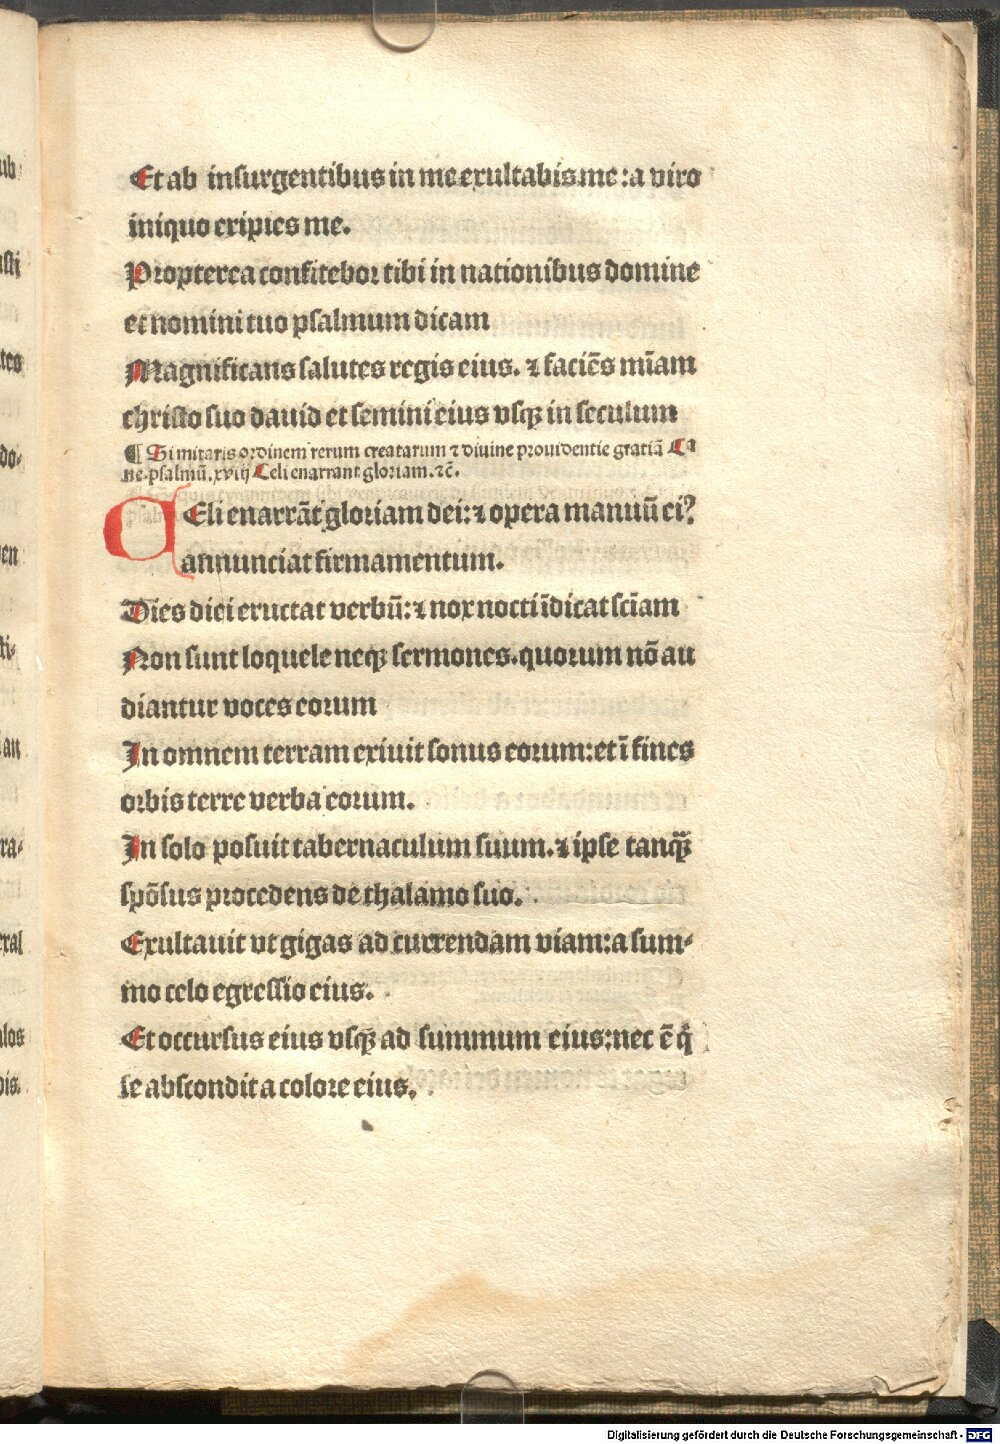 Et ab insurgentibus in me exultabis me: a viro
iniquo eripies me.
Propterea confitebor tibi in nationibus domine
et nomini tuo psalmum dicam
Magnificans salutes regis eius. ⁊ faciēs mīam
christo suo dauid et semini eius vsqꝫ in seculum
¶ Si mitaris ordinem rerum creatarum ⁊ diuine prouidentie gratiā Ca
ne psalmū. xviij Celi enarrant gloriam. ⁊c̄.
CEli enarrāt gloriam dei: ⁊ opera manuū eiꝰ
annunciat firmamentum.
Dies diei eructat verbū: ⁊ nox nocti īdicat scīam
Non sunt loquele neqꝫ sermones. quorum nō au
diantur voces eorum
In omnem terram exiuit sonus eorum: et ī fines
orbis terre verba eorum.
In solo posuit tabernaculum suum. ⁊ ipse tanqꝫ̄
spōsus procedens de thalamo suo.
Exultauit vt gigas ad currendam viam: a sum⸗
mo celo egressio eius.
Et occursus eius vsqꝫ ad summum eius: nec ē q̇
se abscondit a colore eius.
Digitalisierung gefördert durch die Deutsche Forschungsgemeinschaft - DFG